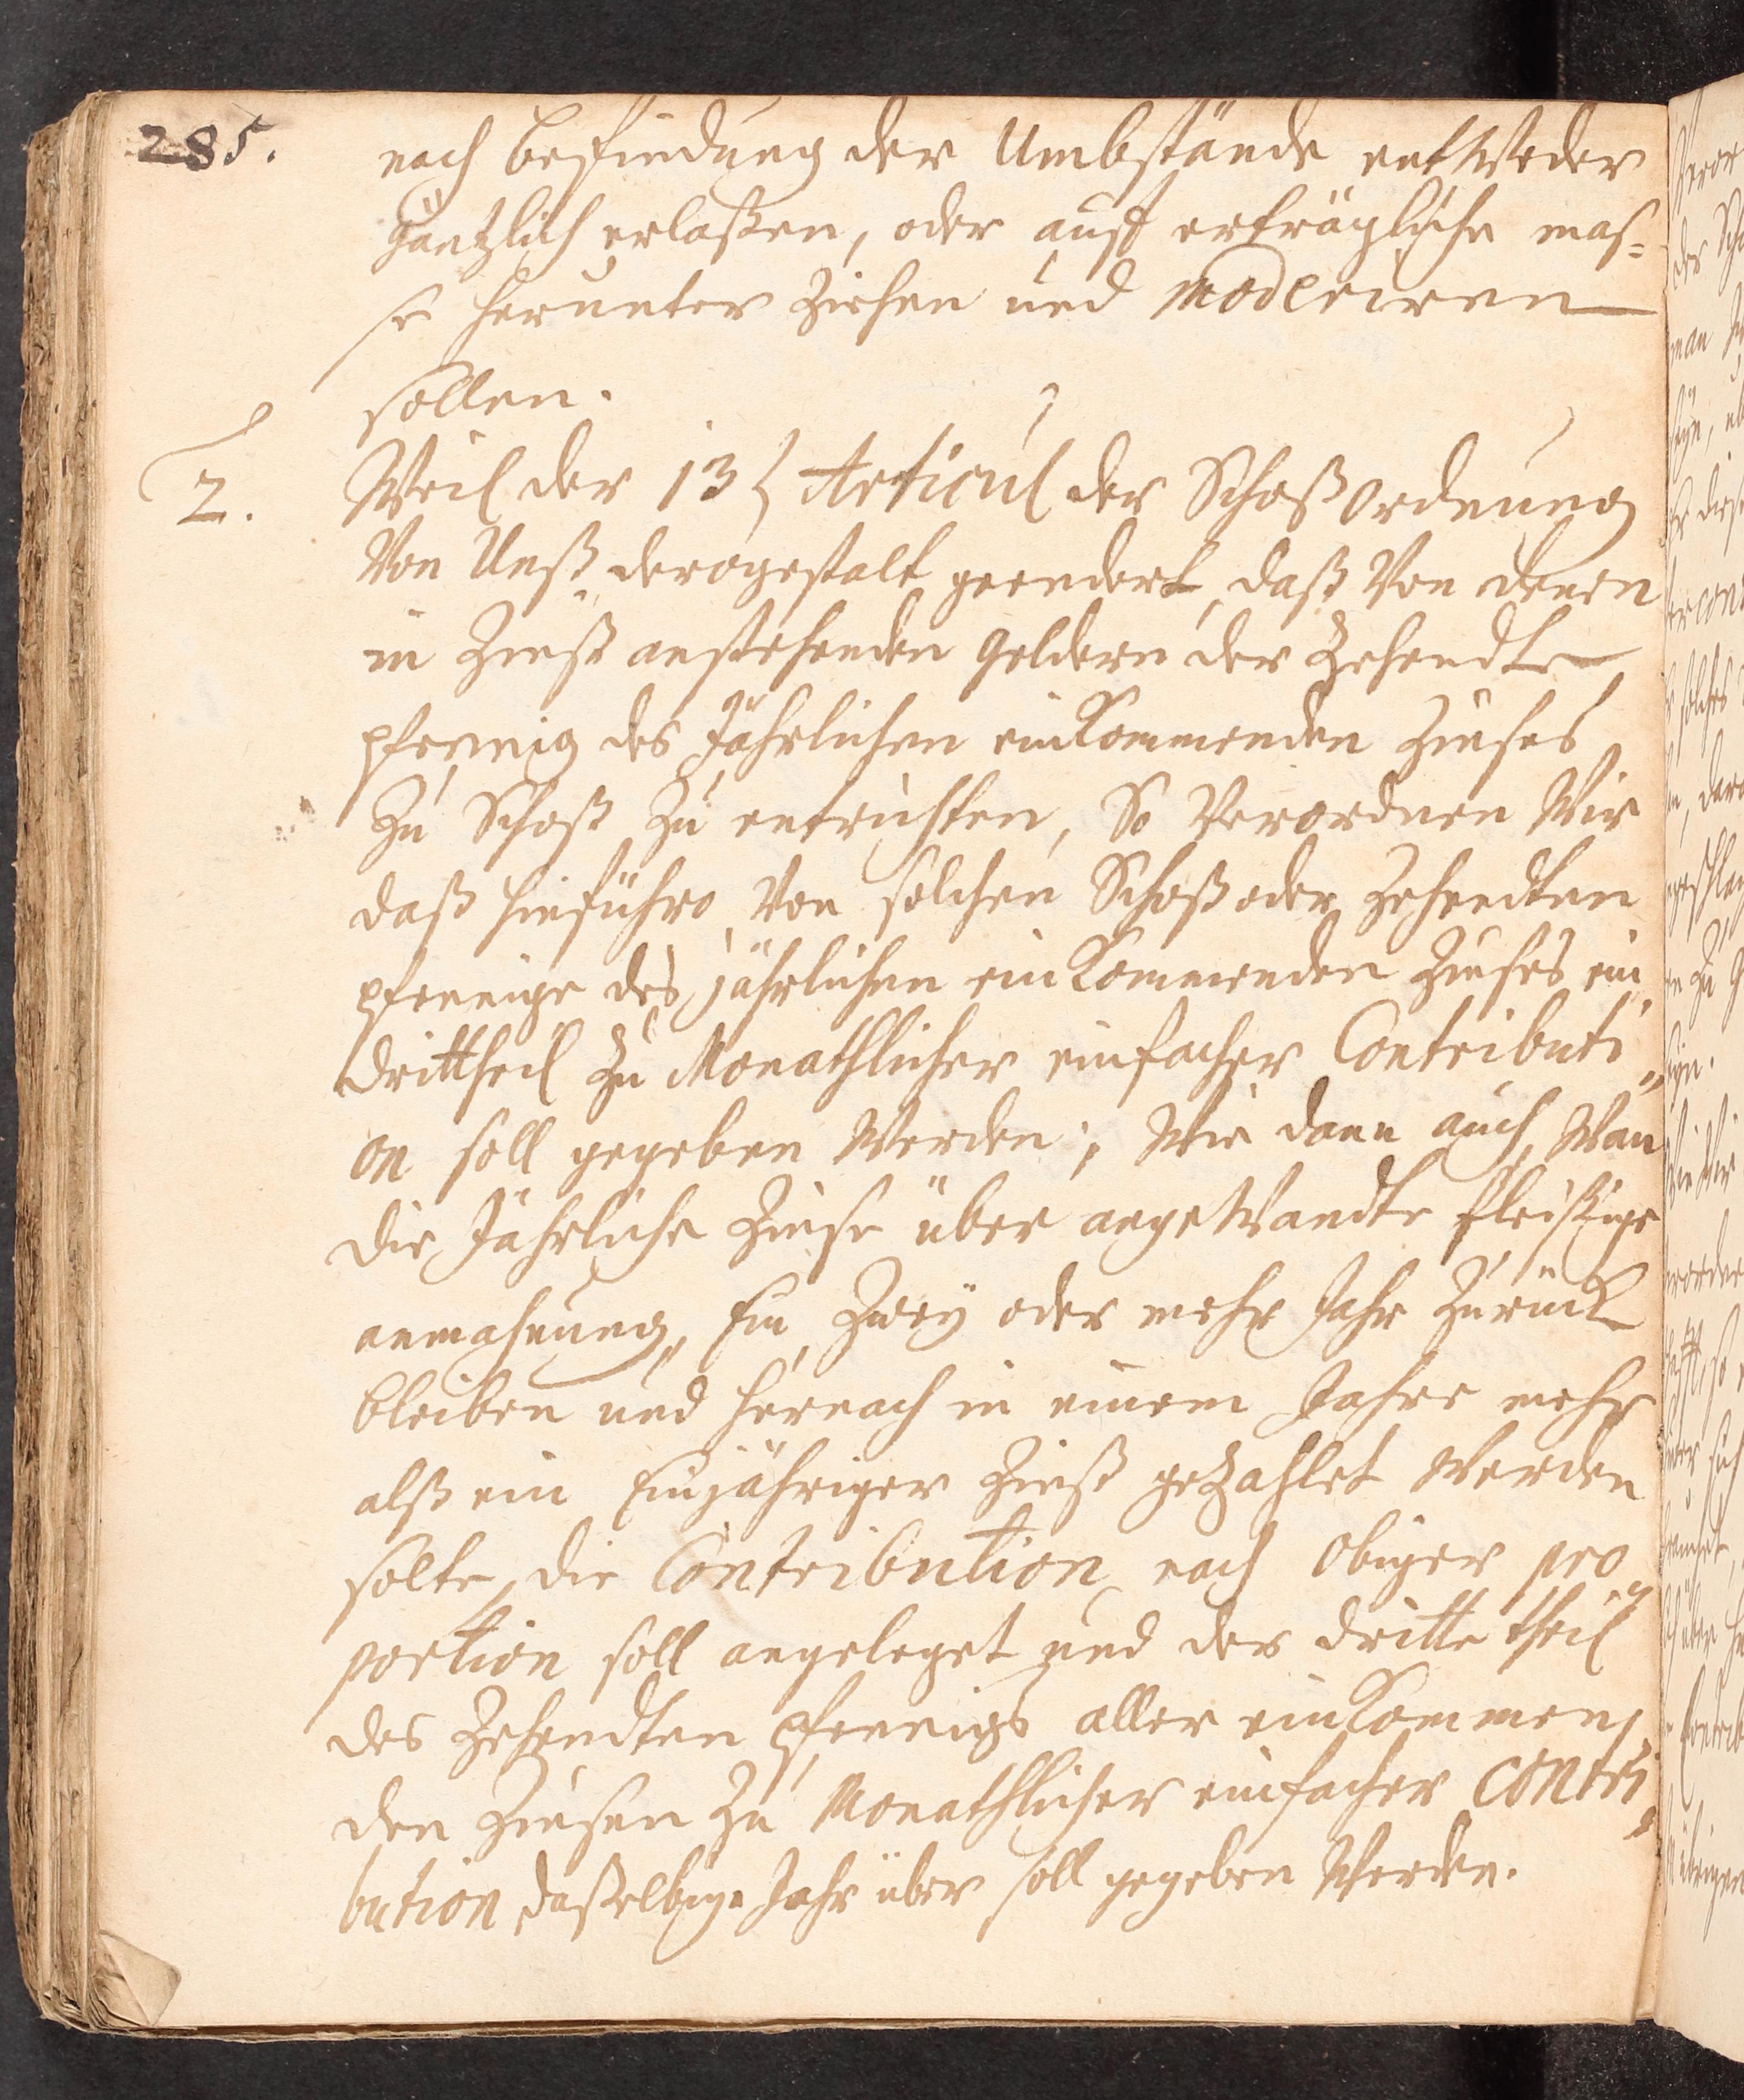 285.
nach befindung der Umbstände entweder
gäntzlich erlaßen, oder auff erträgliche mas-
se herunter ziehen und moderiren
sollen.
2. Weil der 13t Articul der Schoßordnung
Von Unß derogestalt geendert, daß Von denen
in Zinß anstehenden geldern der Zehendte
pfennig des Jährlichen einkommenden Zinses
Zu Schoß zu entrichten, So Verordnen Wir
daß hinführo Von solchen Schoß oder Zehendten
pfennige des jährlichen einkommenden Zinses ein
drittheil zu Monathlicher einfacher Contributi„
on soll gegeben Werden; Wie dann auch, Wan
die Jährliche Zinse über angewandte fleißige
anmahnung, Ein, Zwey oder mehr Jahr Zurück
bleiben und hernach in einem Jahre mehr
alß ein Einjähriger Zinß gezahlet Werden
solte, die Contribution nach obiger pro„
portion soll angeleget und der dritte theil
des Zehendten pfennigs aller einkommen„
den Zinsen zu Monathlicher einfacher Contri„
bution daßelbige Jahr über soll gegeben Werden.